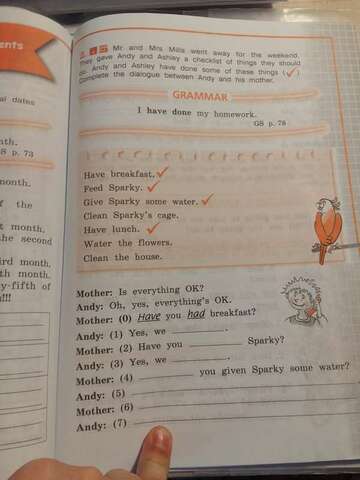 ents
al dates
nth.
S p. 73
month.
f the
t month.
the second
ird month.
th month.
y-fifth of
!!!
Mr and Mrs Mills went away for the weekend.
They gave Andy and Ashley a checklist of things they should
do. Andy and Ashley have done some of these things (✓).
Complete the dialogue between Andy and his mother.
GRAMMAR
I have done my homework.
GS p. 78
Have breakfast. ✓
Feed Sparky. ✓
Give Sparky some water. ✓
Clean Sparky's cage.
Have lunch. ✓
Water the flowers.
Clean the house.
Mother: Is everything OK?
Andy: Oh, yes, everything's OK.
Mother: (0) Have you had breakfast?
Andy: (1) Yes, we ________.
Mother: (2) Have you ________ Sparky?
Andy: (3) Yes, we ________.
Mother: (4) ________ you given Sparky some water?
Andy: (5) ________
Mother: (6) ________
Andy: (7) ________